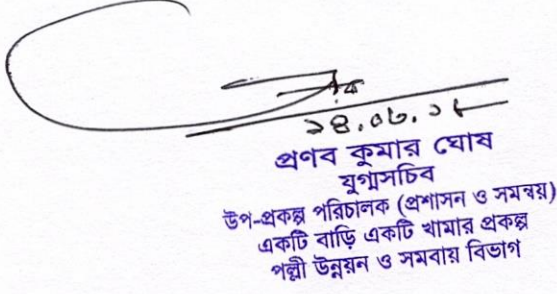 প্রণব কুমার ঘোষ
যুগ্মসচিব
উপ-প্রকল্প পরিচালক (প্রশাসন ও সমন্বয়)
একটি বাড়ি একটি খামার প্রকল্প
পল্লী উন্নয়ন ও সমবায় বিভাগ